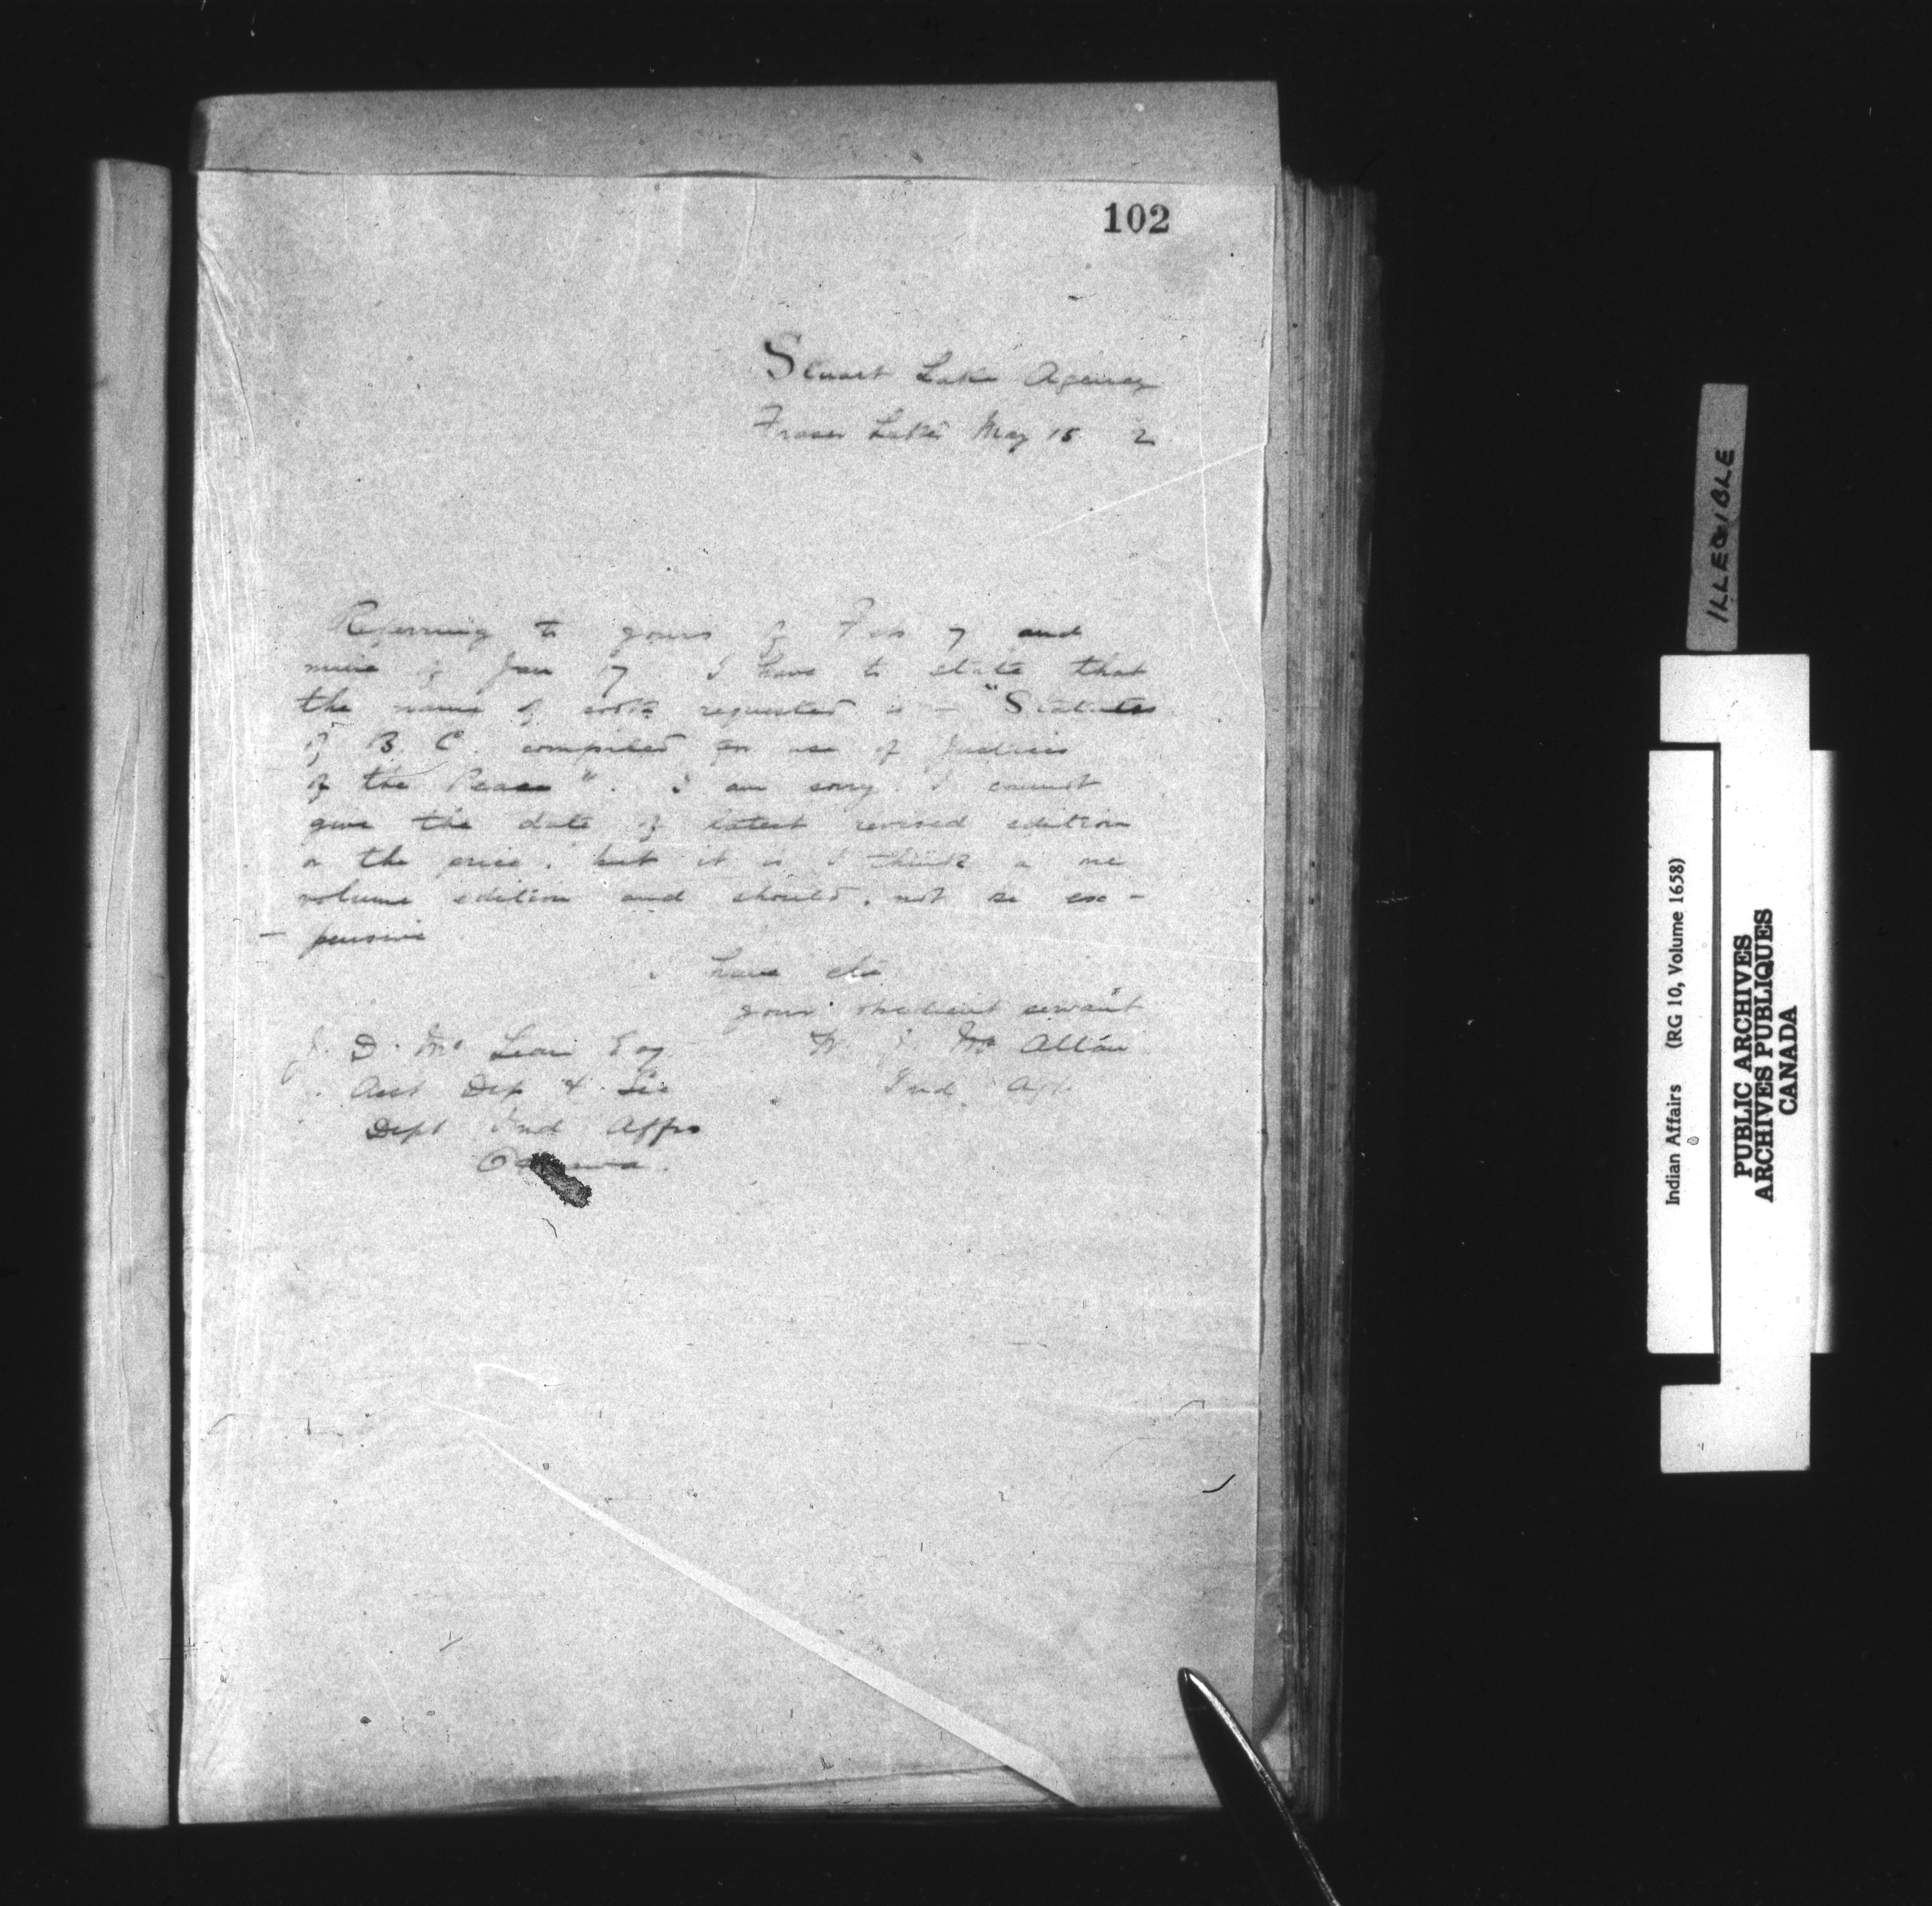 102
Stuart Lake Agency
Fraser Lake May 15 2
Referring to yours of Feb 7 and
mine of Jan 17 I have to state that
the name of work requested is - "Statutes
of B. C. compiled for use of Justices
of the Peace". I am sorry I cannot
give the date of latest revised edition
or the price, but it is I think a one
volume edition and should not be ex-
- pensive
I have etc
your obedient servant
J. D. Mc Lean Esq W. J. Mc Allan
Asst Dep & Sec Ind Agt.
Dept Ind Affrs
Ottawa.
ILLEGIBLE
Indian Affairs (RG 10, Volume 1658)
PUBLIC ARCHIVES
ARCHIVES PUBLIQUES
CANADA